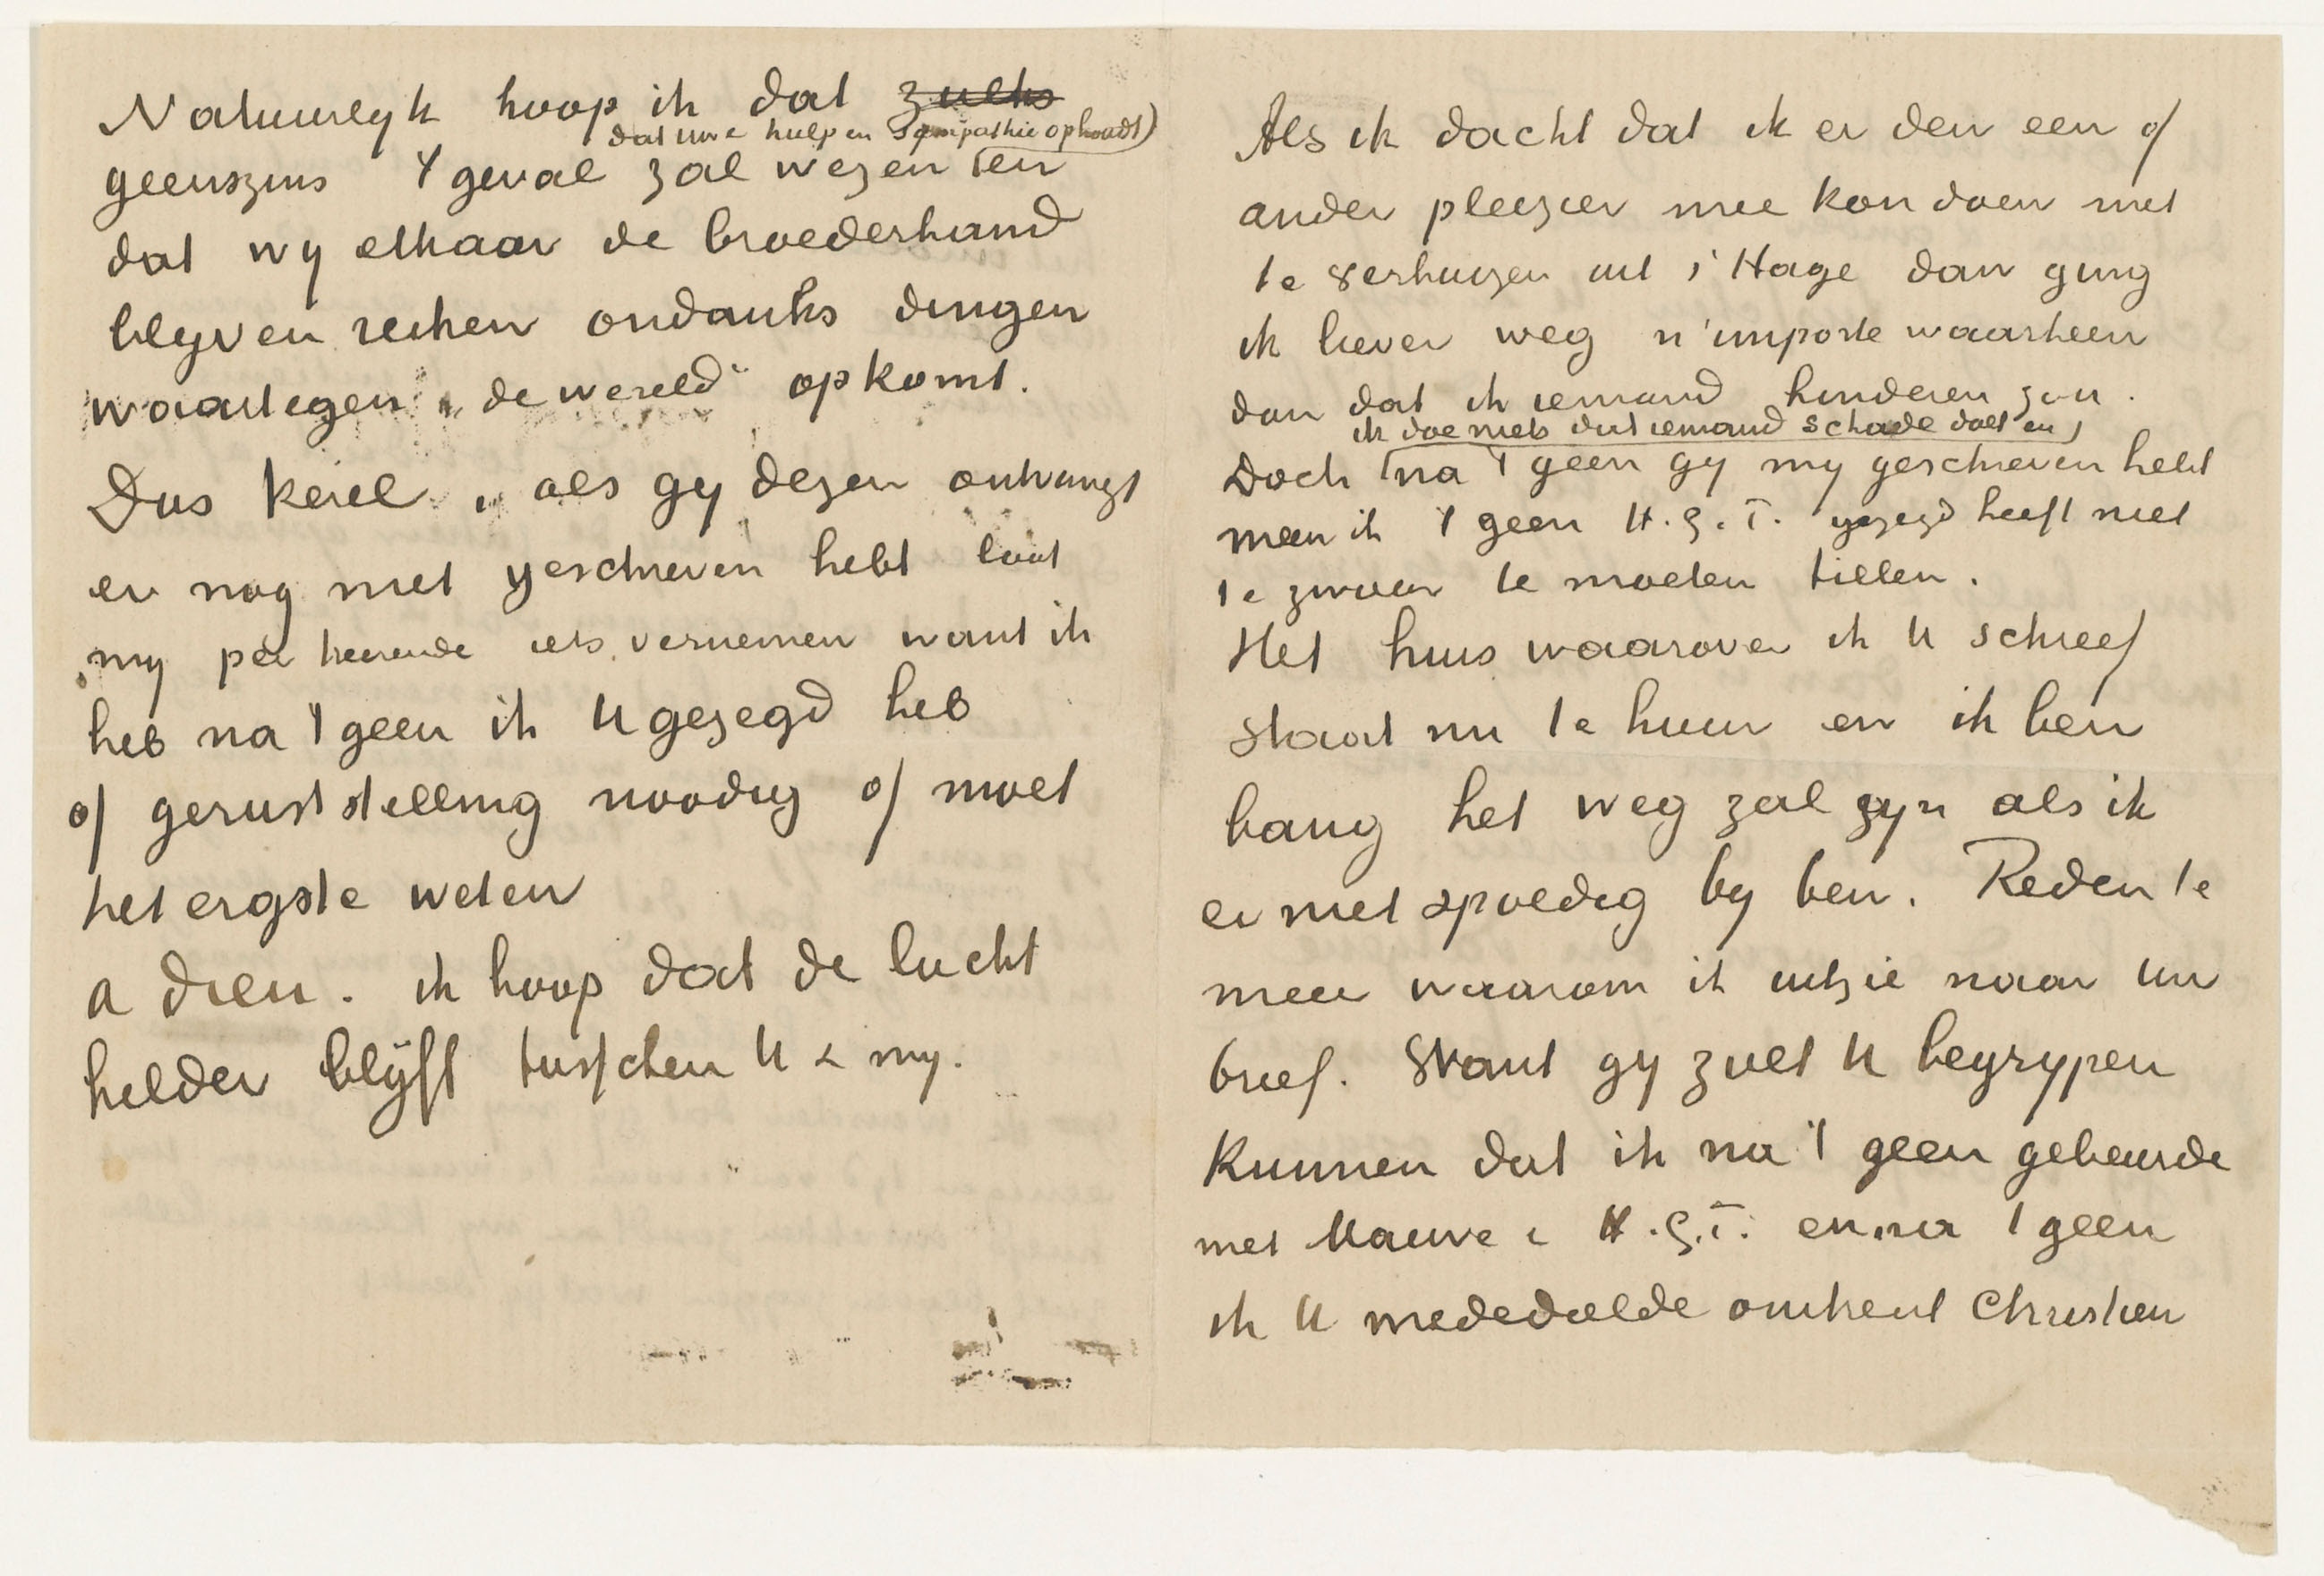 Natuurlyk hoop ik dat zulks
dat uwe hulp en sympathie ophoudt)
geenszins 't geval zal wezen (en
dat wy elkaar de broederhand
blyven reiken ondanks dingen
waartegen „de wereld" opkomt.
Dus kerel, als gy dezen ontvangt
en nog niet geschreven hebt laat
my per keerende iets vernemen want ik
heb na 't geen ik U gezegd heb
of geruststelling noodig of moet
het ergste weten
adieu. ik hoop dat de lucht
helder blijft tusschen U & my.
Als ik dacht dat ik er den een of
ander pleizier mee kon doen met
te verhuizen uit s'Hage dan ging
ik liever weg n'importe waarheen
dan dat ik iemand hinderen zou.
ik doe niets dat iemand schade doet en)
Doch (na 't geen gy my geschreven hebt
meen ik 't geen H.G.T. gezegd heeft niet
te zwaar te moeten tillen.
Het huis waarover ik U schreef
staat nu te huur en ik ben
bang het weg zal zyn als ik
er niet spoedig by ben. Reden te
meer waarom ik uitzie naar uw
brief. Want gy zult U begrypen
kunnen dat ik na 't geen gebeurde
met Mauve & H.G.T. en na 't geen
ik U mededeelde omtrent Christien